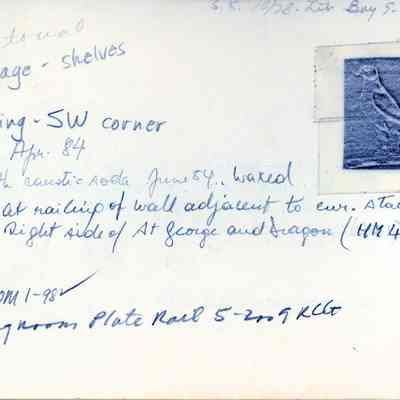 age - shelves
ing - SW corner
Apr. 84
th caustic soda June 84, waxed
at railing of wall adjacent to cur.
Right side of St George and Dragon (HM 4
OM 1-98 ✓
g room Plate Rail 5-2009